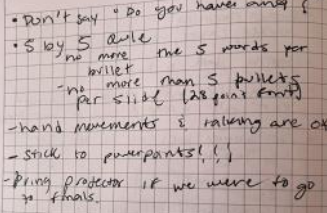 • Don't say "Do you have any
• 5 by 5 rule
-no more the 5 words per
bullet
-no more than 5 bullets
per slide (28 point font)
-hand movements & talking are ok
- stick to powerpoints!!!
-Bring projector if we were to go
to finals.